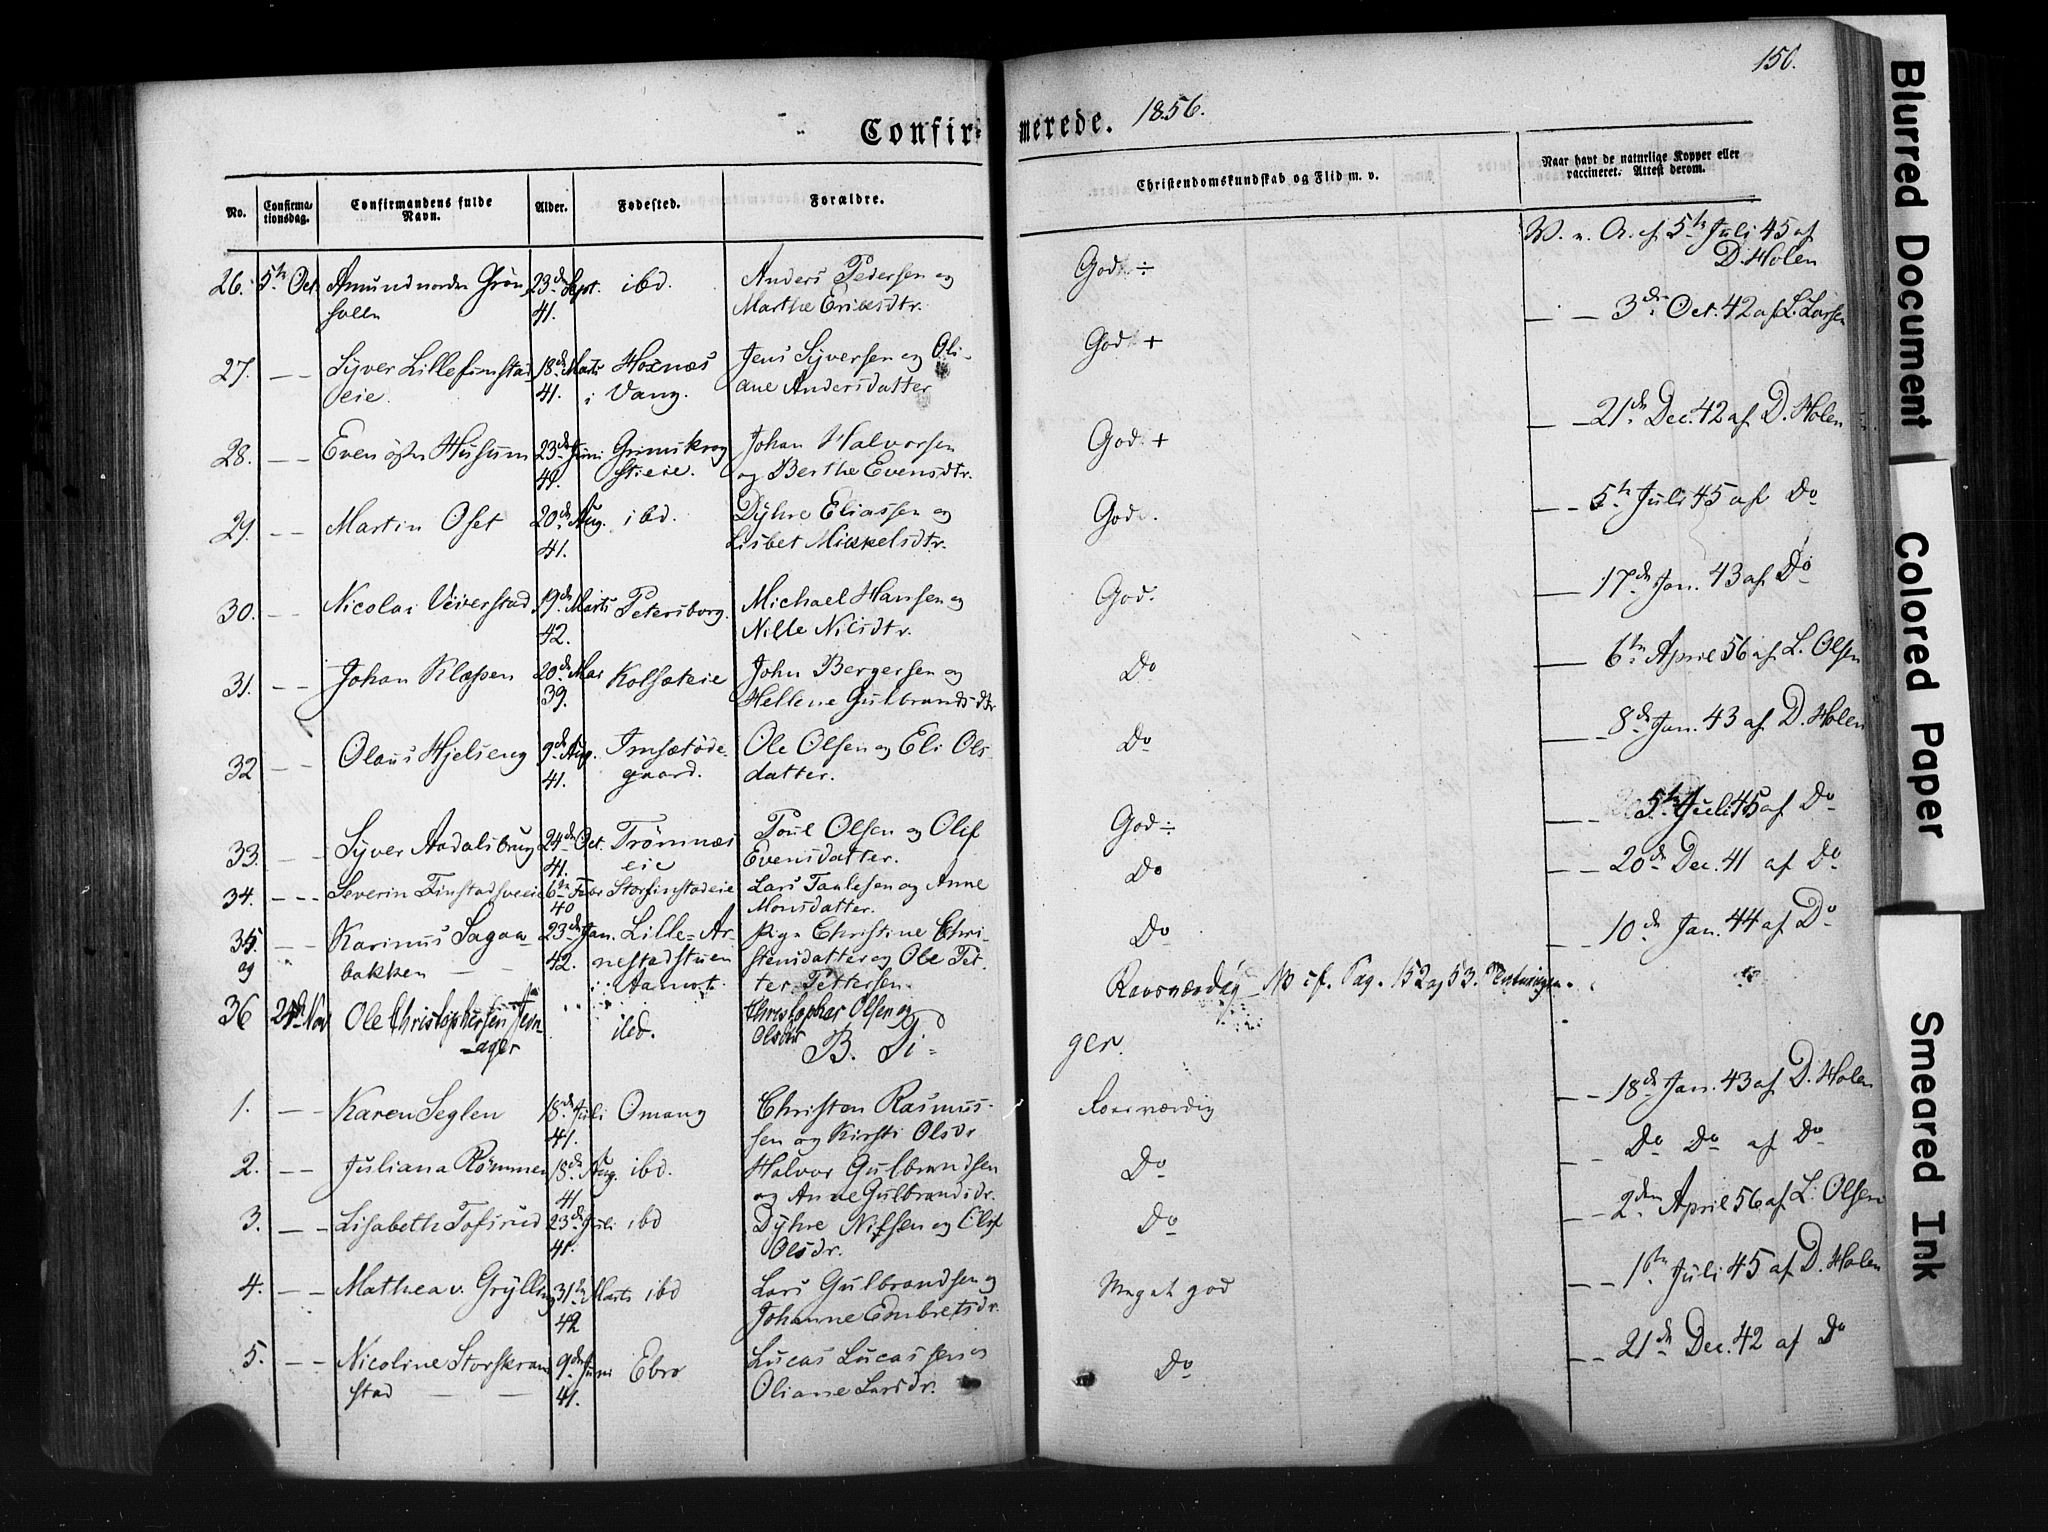 150.
Confirmerede. 1856.
No.
Confirmationsdag.
Confirmandens fulde Navn.
Alder.
Fødested.
Forældre.
Christendomskundskab og Flid m. v.
Naar havt de naturlige Kopper eller vaccineret. Attest derom.
26. 5te Oct. Amund norden Grön 23de Sept. ibd. Anders Pedersen og God ÷ V. n. A. af 5te Juli 45 af
sveen 41. Marthe Eriksdtr. D. Holen
27. — — Syver Lillefinstad 18de Marts Hoxnæs Jens Syversen og Oli- God + — — 3die Oct. 42 af L. Larsen
eie. 41. i Vang. ane Andersdatter
28. — — Even östen Husum 23de Juni Grimskrog Johan Halvorsen God + — — 21de Dec. 42 af D. Holen
41. stieie. og Berthe Evensdtr.
29. — — Martin Oset 20de Aug. ibd. Dyhre Eliassen og God. — — 5te Juli 45 af Do
41. Lisbet Mikkelsdtr.
30. — — Nicolai Veiverstad 19de Marts Petersborg. Michael Hansen og God. — — 17de Jan. 43 af Do
42. Nille Nilsdtr.
31. — — Johan Klæpen 20de Mai Kolsæteie John Bergersen og Do — — 6te April 56 af L. Olsen
39. Hellene Gulbrandsdtr
32 — — Olaus Hjelseng 9de Aug. Imsetöde- Ole Olsen og Eli Ols- Do — — 8de Jan. 43 af D. Holen
41. gaard. datter.
33. — — Syver Aadalsbrug 24de Oct. Trömnæs Poul Olsen og Olif God ÷ — — 5te Juli 45 af Do
41. eie Evensdatter.
34. — — Severin Finstadsveeie 6te Febr Storfinstadeie Lars Paulesen og Anne Do — — 20de Dec. 41 af Do
40 Monsdatter.
35. — — Karinus Sagaa- 23de Jan. Lille-Ar- Pige Christine Chri- Do — — 10de Jan. 44 af Do
og bakken — — 42. nestadstuen stensdatter og Ole Pet-
i Aamot. ter Pettersen.
36 Nov Ole Christophersen ibd. Christopher Olsen og Raosværdig NB cf. Pag. 152 og 53.
ager Olsdtr
B. Pi- ger.
1. — — Karen Seglen 18de Juli Omang Christen Rasmus- Roesværdig — — 18de Jan. 43 af D. Holen
41. sen og Kirsti Olsdr
2. — — Juliana Römmen 18de Aug. ibd. Halvor Gulbrandsen Do — — Do Do af Do
41 og Anne Gulbrandsdr.
3. — — Lisabeth Tofsrud 23de Juli ibd Dyhre Nilsen og Olif Do — — 2den April 56 af L. Olsen
41. Olsdr.
4. — — Mathea v. Grylling 31te Marts ibd Lars Gulbrandsen og Meget god — — 1ste Juli 45 af D. Holen
42 Johanne Embretsdr.
5. — — Nicoline Storskram 9de Juni Ebro Lucas Lucassen og Do — — 21de Dec. 42 af Do
stad — — 41. Oliane Larsdr.
Blurred Document
Colored Paper
Smeared Ink